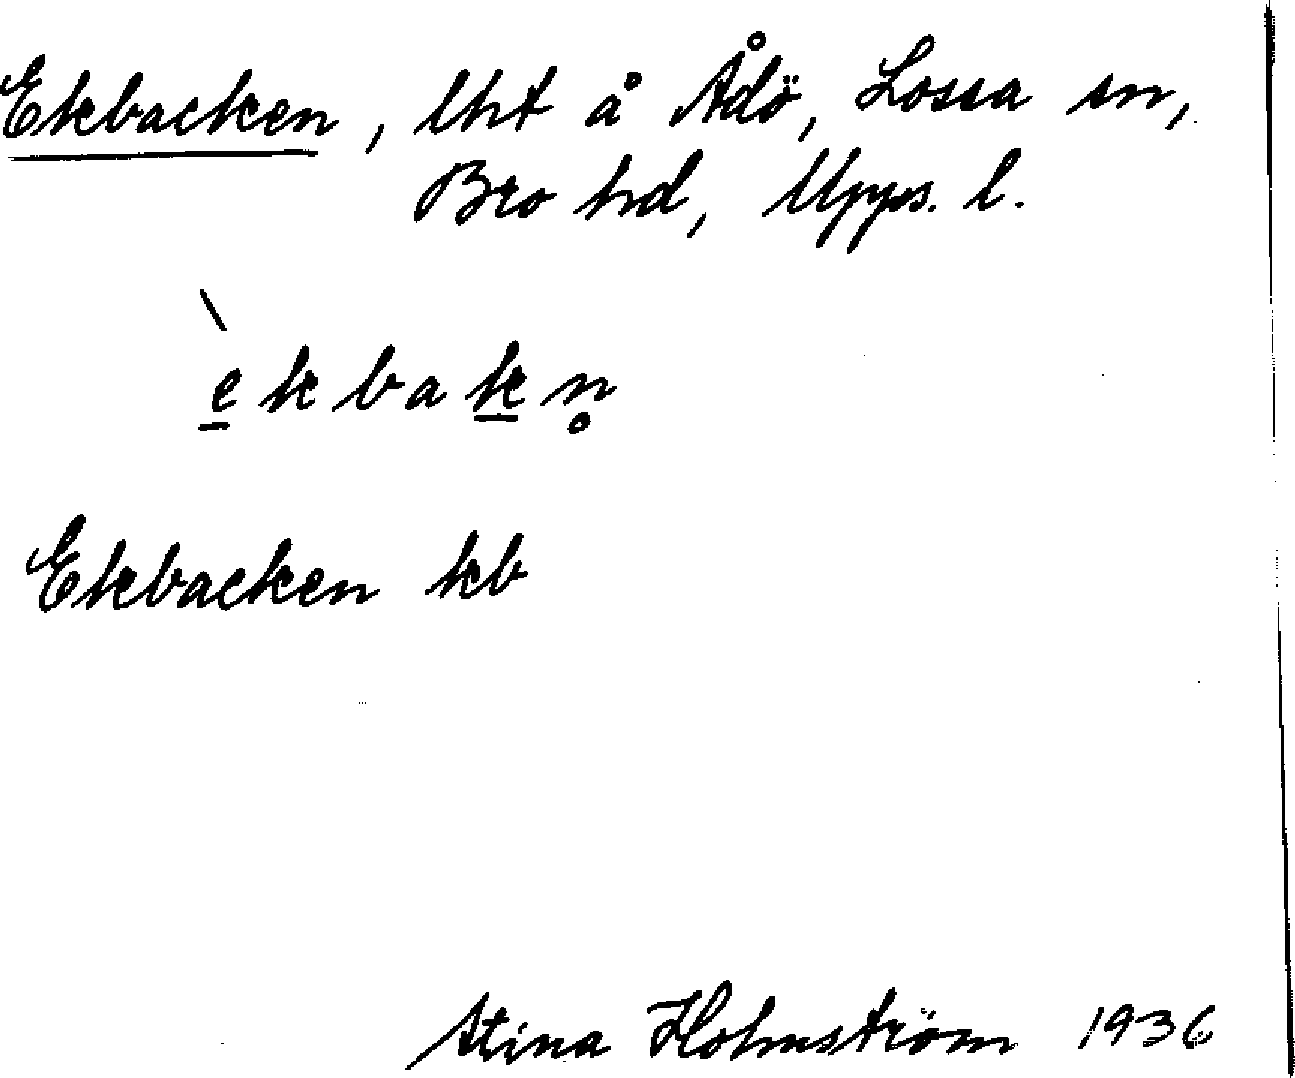 Ekbacken, lht å Ådö, Lossa sn,
Bro hd, Upps. l.
è̱kbaḵn̥
Ekbacken kb
Stina Holmström 1936